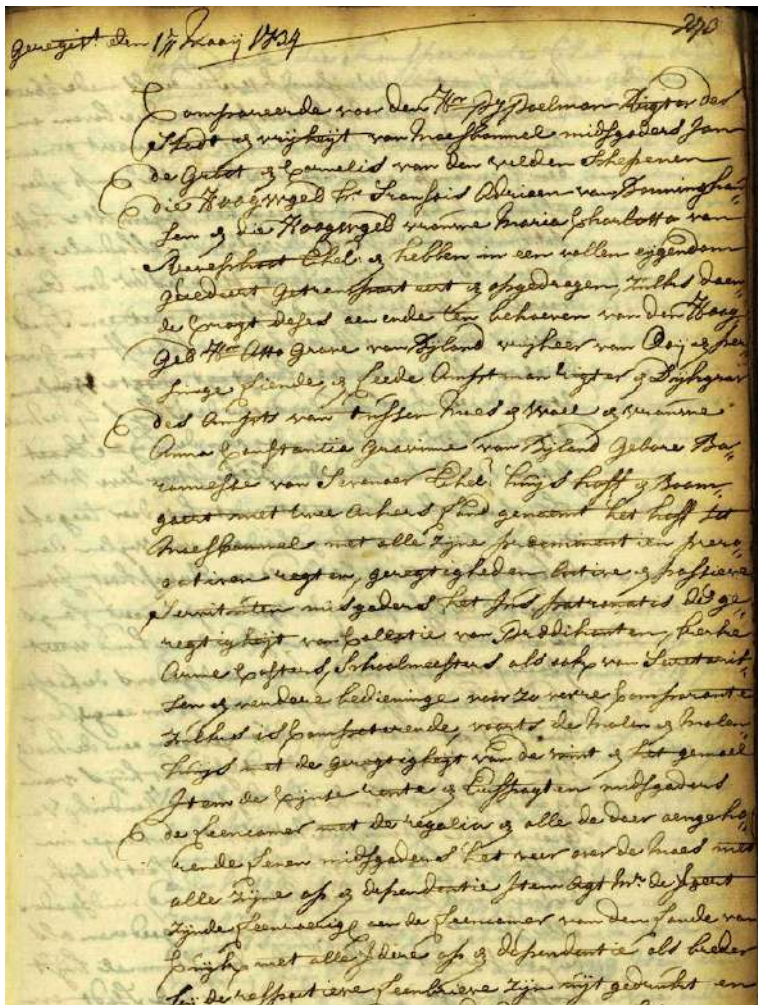 geregist. den 1 Maaij 1734
270
Compareerde voor den Hr. Poelman Rigter des
Stadt & vrijheijt van Maesbommel midsgaders Jan
de Groot & Cornelis van den velden Schepenen
die Hoogwgeb hr. Fransois Adriaen van
sen & die Hoogwgeb vrouwe Maria Charlotta van
Ehel. & hebben in een vollen eijgendom
getransporteert & opgedragen, zulks doen
de cragt deses aen ende ten behoeven van den Hoog
Geb Hr. Otto Grave van Bijland vrijheer van &
Leede Amptman Rigter & Dijkgraef
des Ampts van tussen Maes & Wael & vrouwe
Anna Constantia Gravinne van Bijland Gebore Ba=
ronnesse van Sevenaer Ehel. huijs hoff & Boom=
gaert met twee Ackers Land genaemt het hoff tot
Maesbommel met alle zijne preeminentien prero=
gativen regten, geregtigheden Active & passieve
Servituten midsgaders het Jus patronatis des ge=
regtigheijt van Collatie van Predikanten, kerke
Arme Costers, Schoolmeesters als ook van Secretaris=
sen & verdere bedieninge voor zo verre Comparante
zulks is Competerende, voorts de molen & molen=
huijs met de geregtigheijt van de wint & het gemael
Item de Cijnse rente & midsgaders
de Leencamer met de regalia & alle de daer aengeho=
rende Lenen midsgaders het veer over de Maes met
alle zijne ap & dependentie Item Agt Mr. de
zijnde Leenroerig aen de Leencamer van den Lande van
Cuijk met alle ap & dependentie als breder
bij de respective Leenbrieve zijn uijt gedruckt en